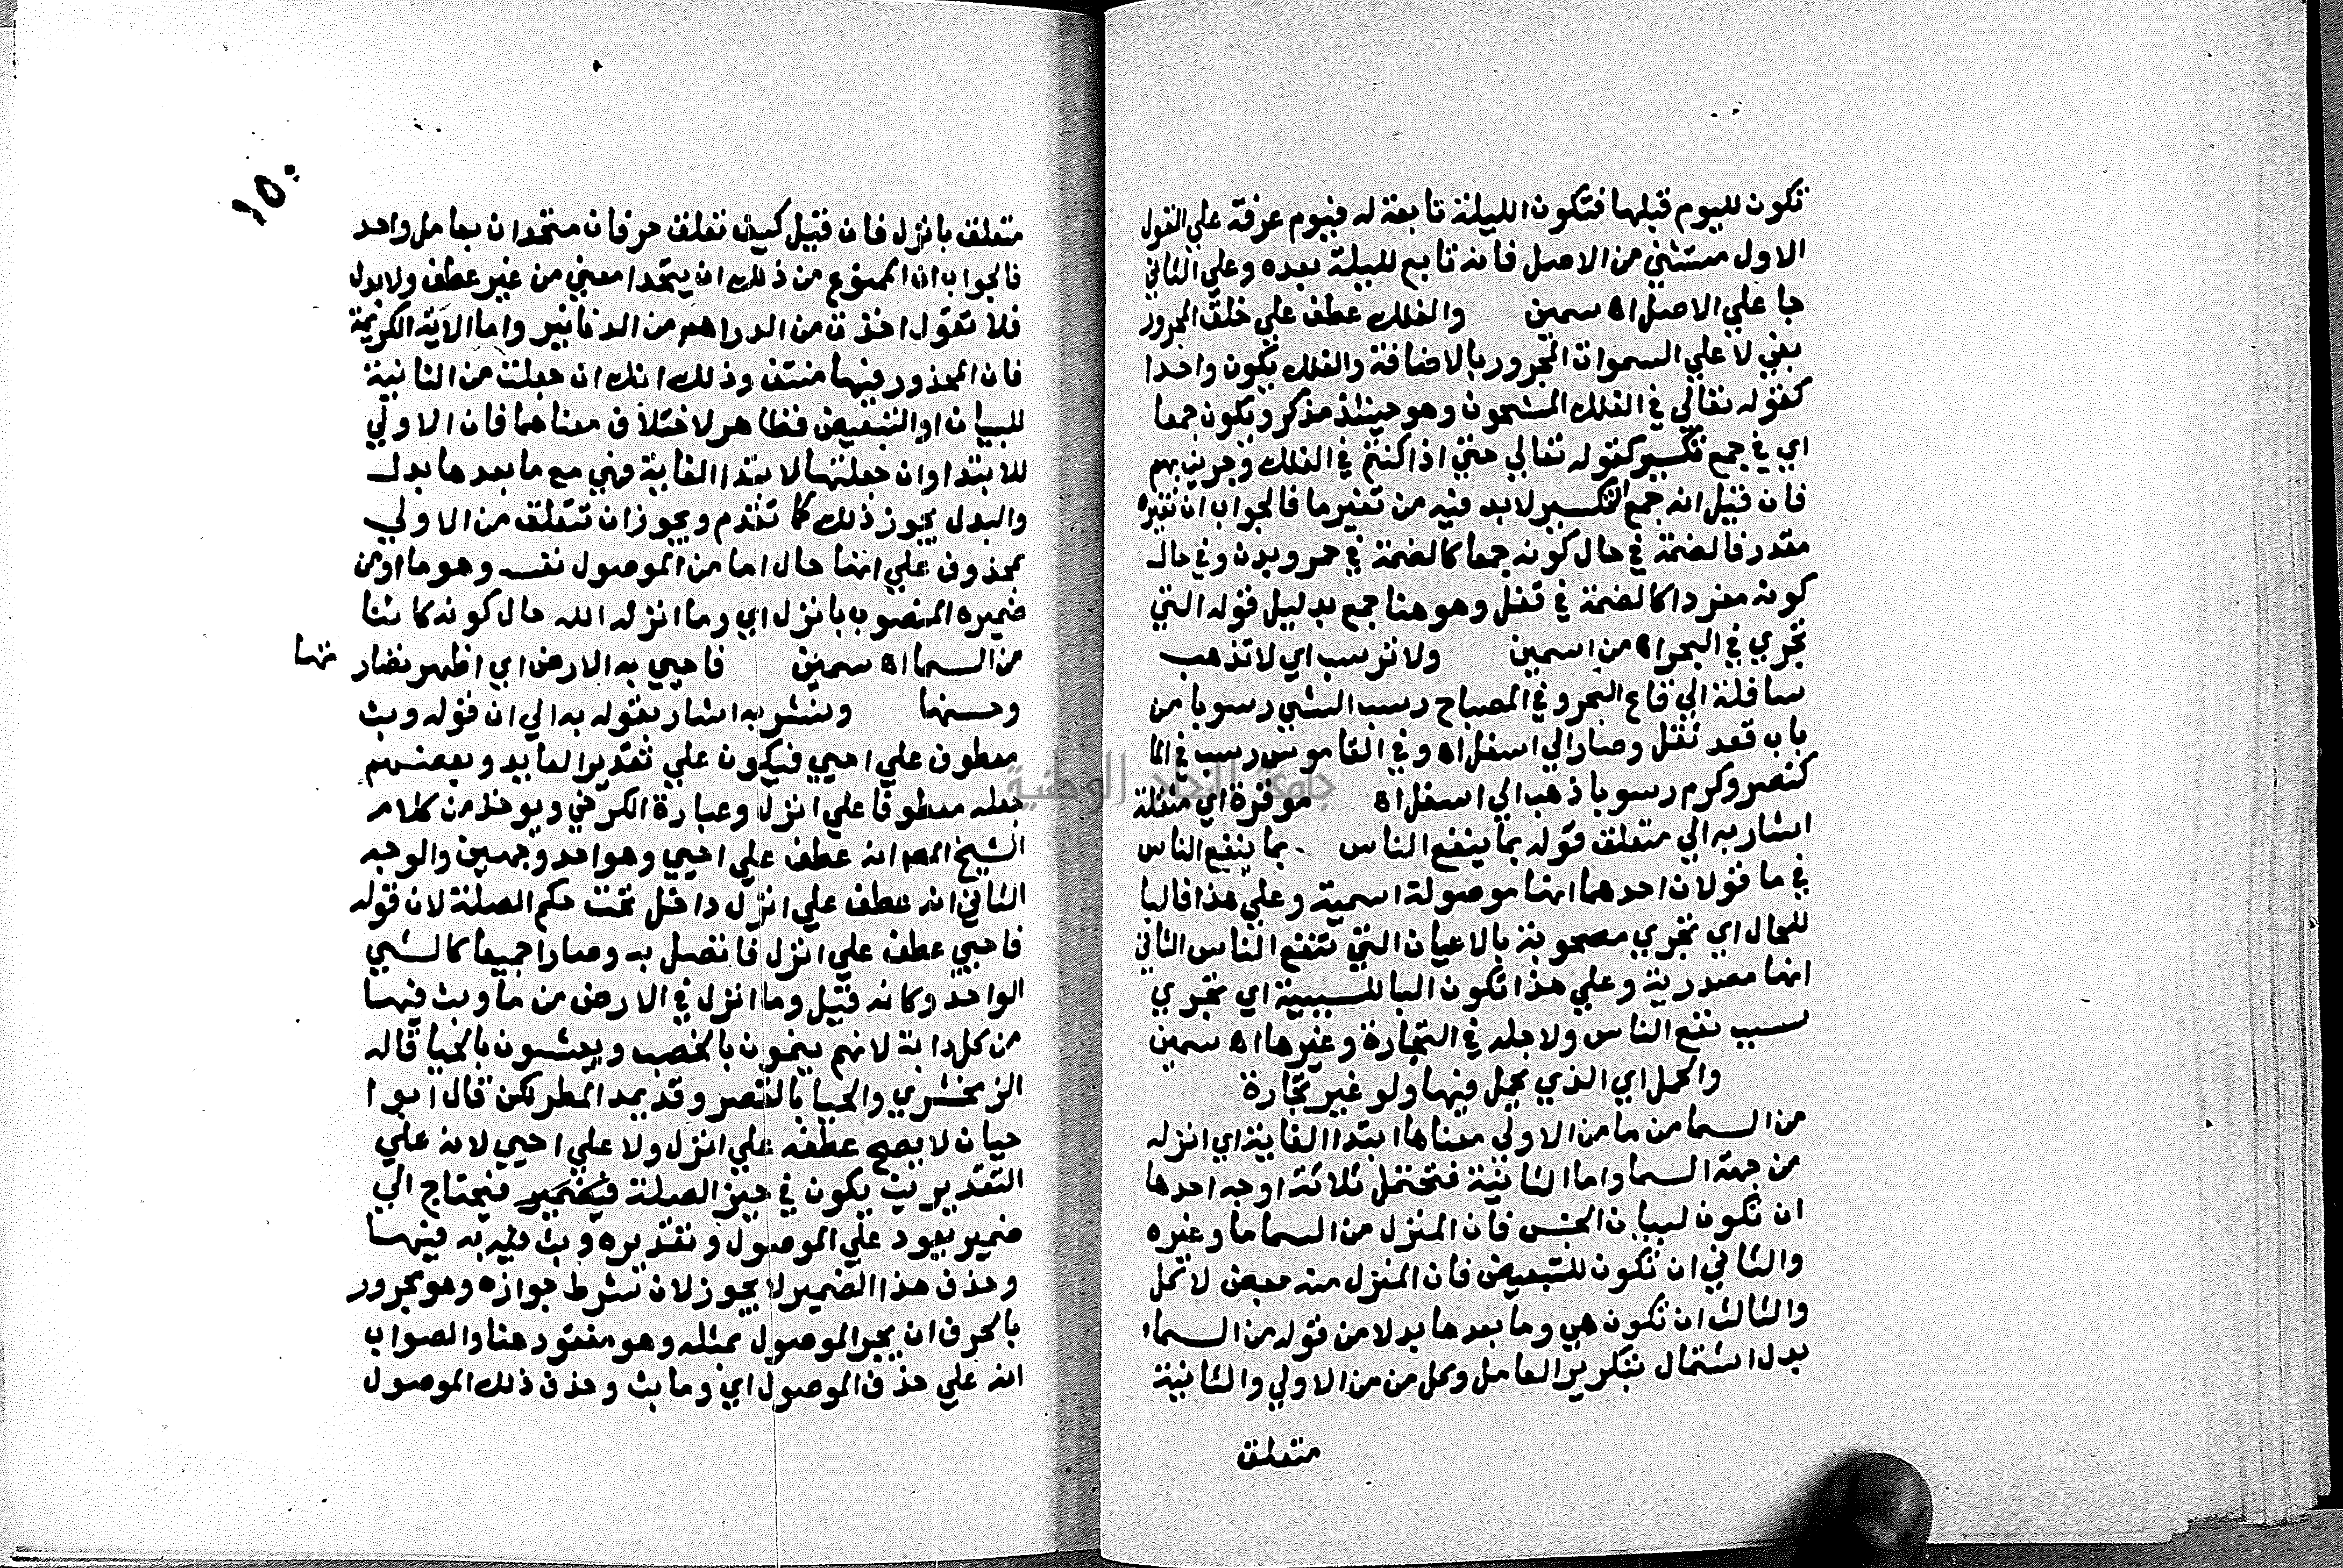 تكون لليوم قبلها فتكون الليلة تابعة له فيوم عرفة علي القول
الاول مستثني من الاصل فانه تابع لليلة بعده وعلي الثاني
جا علي الاصل اه سمين والفلك عطف علي خلق المجرور
بفي لا علي السموات المجرور بالاضافة والفلك يكون واحدا
كقوله تعالي في الفلك المشحون وهو حينئذ مذكر ويكون جمعا
اي في جمع تكسير كقوله تعالي حتي اذا كنتم في الفلك وجرين بهم
فان قيل انه جمع التكسير لابد فيه من تغير ما فالجواب ان تغيره
مقدر فالضمة في حال كونه جمعا كالضمة في حمر وبدن وفي حال
كونه مفردا كالضمة في قفل وهو هنا جمع بدليل قوله التي
تجري في البحر اه من اسمين ولا ترسب اي لا تذهب
سافلة الي قاع البحر وفي المصباح رسب الشي رسوبا من
باب قعد ثقل وصار الي اسفل اه وفي القاموس رسب في الما
كنصر وكرم رسوبا ذهب الي اسفل اه موقرة اي مثقلة
اشار به الي متعلق قوله بما ينفع الناس بما ينفع الناس
في ما قولان احدهما انها موصولة اسمية وعلي هذا فالبا
للحال اي تجري مصحوبة بالاعيان التي تنفع الناس الثاني
انها مصدرية وعلي هذا تكون البا للسببية اي تجري
بسبب نفع الناس ولاجله في التجارة وغيرها اه سمين
والحمل اي الذي يحمل فيها ولو غير تجارة
من السما من ما من الاولي معناها ابتدا الغاية اي انزله
من جهة السما واما الثانية فتحتمل ثلاثة اوجه احدها
ان تكون لبيان الجنس فان المنزل من السما ما وغيره
والثاني ان تكون للتبعيض فان المنزل منه بعض لا كل
والثالث ان تكون هي وما بعدها بدلا من قوله من السماء
بدل اشتمال بتكرير العامل وكل من من الاولي والثانية
متعلق
١٥٠
متعلق بانزل فان قيل كيف تعلق حرفان متحدان بعامل واحد
فالجواب ان الممنوع من ذلك ان يتحدا معني من غير عطف ولا بدل
فلا تقول اخذت من الدراهم من الدنانير واما الآية الكريمة
فان المحذور فيها منتف وذلك انك ان جعلت من الثانية
للبيان او التبعيض فظاهر لاختلاف معناهما فان الاولي
للابتدا وان جعلتها لابتدا الغاية فهي مع ما بعدها بدل
والبدل يجوز ذلك كما تقدم ويجوز ان تتعلق من الاولي
بمحذوف علي انها حال اما من الموصول نفسه وهو ما او من
ضميره المنصوب بانزل اي وما انزله الله حال كونه كائنا
من السما اه سمين فاحيي به الارض اي اظهر نضار تها
وحسنها وينشر به اشار بقوله به الي ان قوله وبث
معطوف علي احيي فيكون علي تقدير العايد وبعضهم
جعله معطوفا علي انزل وعبارة الكرخي ويوخذ من كلام
الشيخ المص انه عطف علي احيي وهو احد وجهين والوجه
الثاني انه عطف علي انزل داخل تحت حكم الصلة لان قوله
فاحيي عطف علي انزل فاتصل به وصارا جميعا كالشي
الواحد وكانه قيل وما انزل في الارض من ما وبث فيها
من كل دابة لانهم ينمون بالخصب ويعيشون بالحيا قاله
الزمخشري والحيا بالقصر وقد يمد المطر لكن قال ابوا
حيان لا يصح عطفه علي انزل ولا علي احيي لانه علي
التقديرين يكون في حيز الصلة فيحتاج الي
ضمير يعود علي الموصول وتقديره وبث به فيها
وحذف هذا الضمير لا يجوز لان شرط جوازه وهو مجرور
بالحرف ان يجر الموصول بمثله وهو مفقود هنا والصواب
انه علي حذف الموصول اي وما بث وحذف ذلك الموصول
جامعة النجاح الوطنية